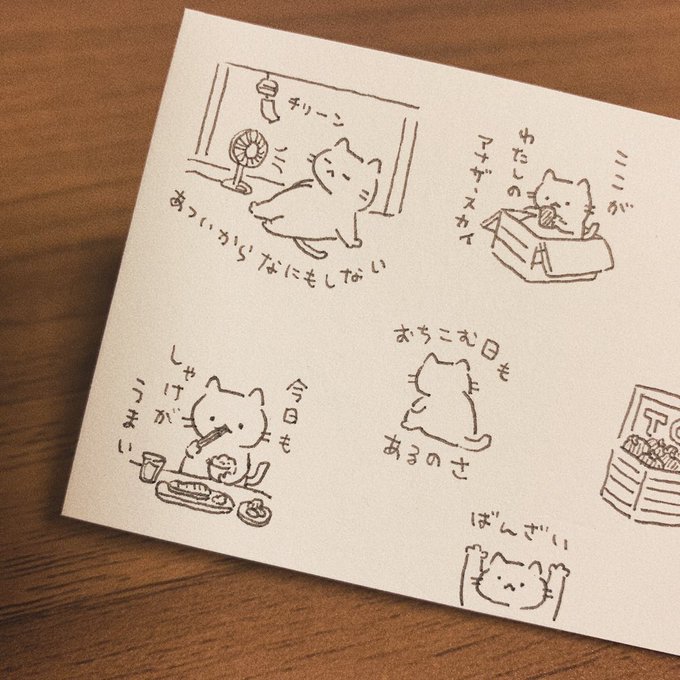 チリーン
あついからなにもしない
ここが
わたしの
アナザースカイ
今日も
しゃけが
うまい
おちこむ日も
あるのさ
ばんざい